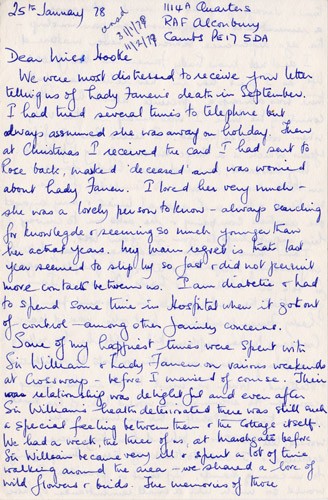 25th January 78
ansd
31/1/79
11/2/79
1114A Quarters
RAF Alconbury
Cambs PE17 5DA
Dear Miss Hooke
We were most distressed to receive your letter
telling us of Lady Fanen's death in September.
I had tried several times to telephone but
always assumed she was away on holiday. Then
at Christmas I received the card I had sent to
Rose back, marked 'deceased' and was worried
about Lady Fanen. I loved her very much -
she was a lovely person to know - always searching
for knowledge & seeming so much younger than
her actual years. My main regret is that last
year seemed to slip by so fast & did not permit
more contact between us. I am diabetic & had
to spend some time in Hospital when it got out
of control - among other family concerns.
Some of my happiest times were spent with
Sir William & Lady Fanen on various weekends
at Crossways - before I married of course. Their
relationship was delightful and even after
Sir William's health deteriorated there was still such
a special feeling between them & the Cottage itself.
We had a week, the three of us, at before
Sir William became very ill & spent a lot of time
walking around the area - we shared a love of
wild flowers & birds. The memories of those